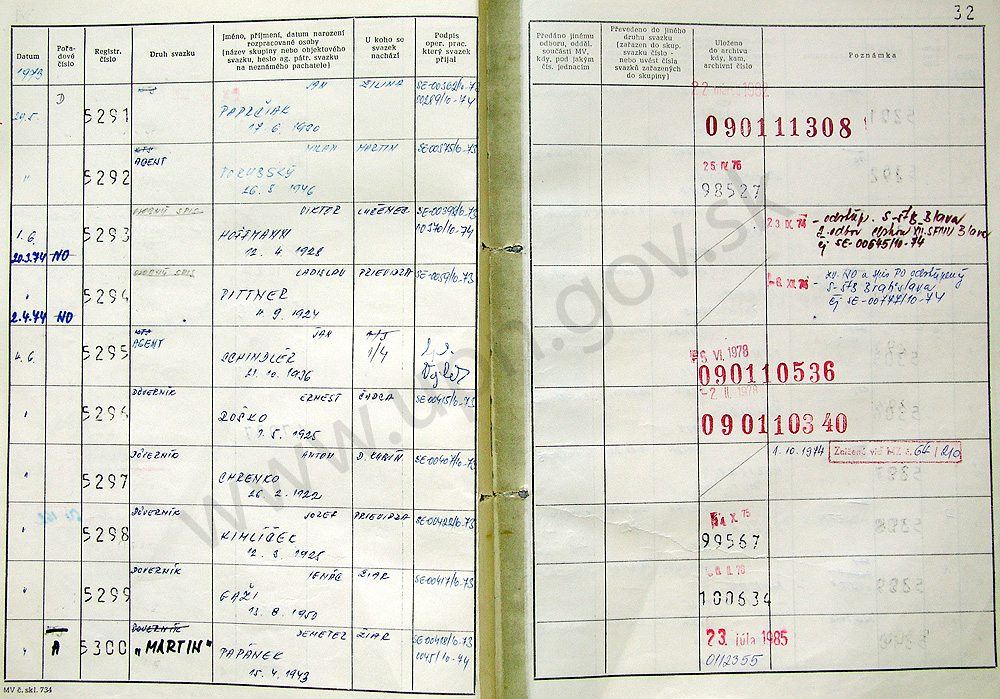 32
Datum
Pořadové číslo
Registr. číslo
Druh svazku
Jméno, příjmení, datum narození
rozpracované osoby
(název skupiny nebo objektového
svazku, heslo ag. pátr. svazku
na neznámého pachatele)
U koho se
svazek
nachází
Podpis
oper. prac.
který svazek
přijal
Předáno jinému
odboru, odděl.
součásti MV,
kdy, pod jakým
čís. jednacím
Převedeno do jiného
druhu svazku
(zařazen do skup.
svazku číslo -
nebo uvést čísla
svazků zařazených
do skupiny)
Uloženo
do archivu
kdy, kam,
archivní číslo
Poznámka
1973
D
29.5.
5291
JAN
ŽILINA
SE-00362/0-73
00289/10-74
17. 6. 1920
090111308
"
5292
AGENT
MILAN
MARTIN
SE-00375/0-73
PORUBSKÝ
26. 8. 1946
25 IV. 76
98527
1.6.
20.3.74 NO
5293
OSOBNÝ SPIS
VIKTOR
LUČENEC
SE-00398/0-73
00370/10-74
HOFFMANN
12. 4. 1928
23. IX. 74
- odstúp. S-ŠtB Blava
ej SE-00645/10-74
"
2.4.74 NO
5294
OSOBNÝ SPIS
LADISLAV
PRIEVIDZA
PITTNER
9. 1924
XII. 74
S-ŠtB Bratislava
ej SE-00777/10-74
4.6.
5295
AGENT
JÁN
1/4
SCHINDLER
21. 10. 1936
VI. 1978
090110536
"
5296
DÔVERNÍK
ERNEST
ČADCA
SE-00415/0-73
BOŠKO
1. 5. 1925
-2. II. 1978
090110340
"
5297
DÔVERNÍK
ANTON
D. KUBÍN
SE-00407/0-73
CHRENKO
26. 2. 1922
1. 10. 1974
Zničený viď MZ č. 64/210
"
5298
DÔVERNÍK
JOZEF
PRIEVIDZA
SE-00422/0-73
KIMLIČEK
12. 3. 1925
X. 75
99567
"
5299
DÔVERNÍK
IGNÁC
ŽIAR
SE-00417/0-73
GAŽI
13. 8. 1950
100634
"
A
5300
DÔVERNÍK
„MARTIN"
DEMETER
ŽIAR
SE-00418/0-73
0045/10-74
PAPÁNEK
15. 4. 1943
23. júla 1985
0112355
MV č. skl. 734
www.upn.gov.sk